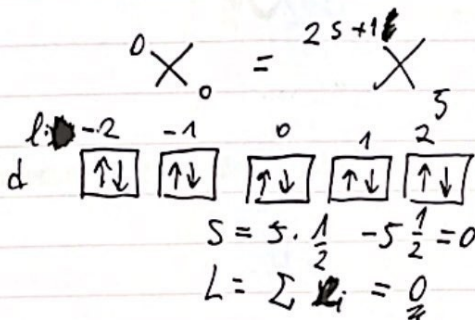 ⁰X₀ = ²ˢ⁺¹X₅
lᵢ -2 -1 0 1 2
d ↑↓ ↑↓ ↑↓ ↑↓ ↑↓
S = 5 · 1/2 - 5 1/2 = 0
L = Σ lᵢ = 0